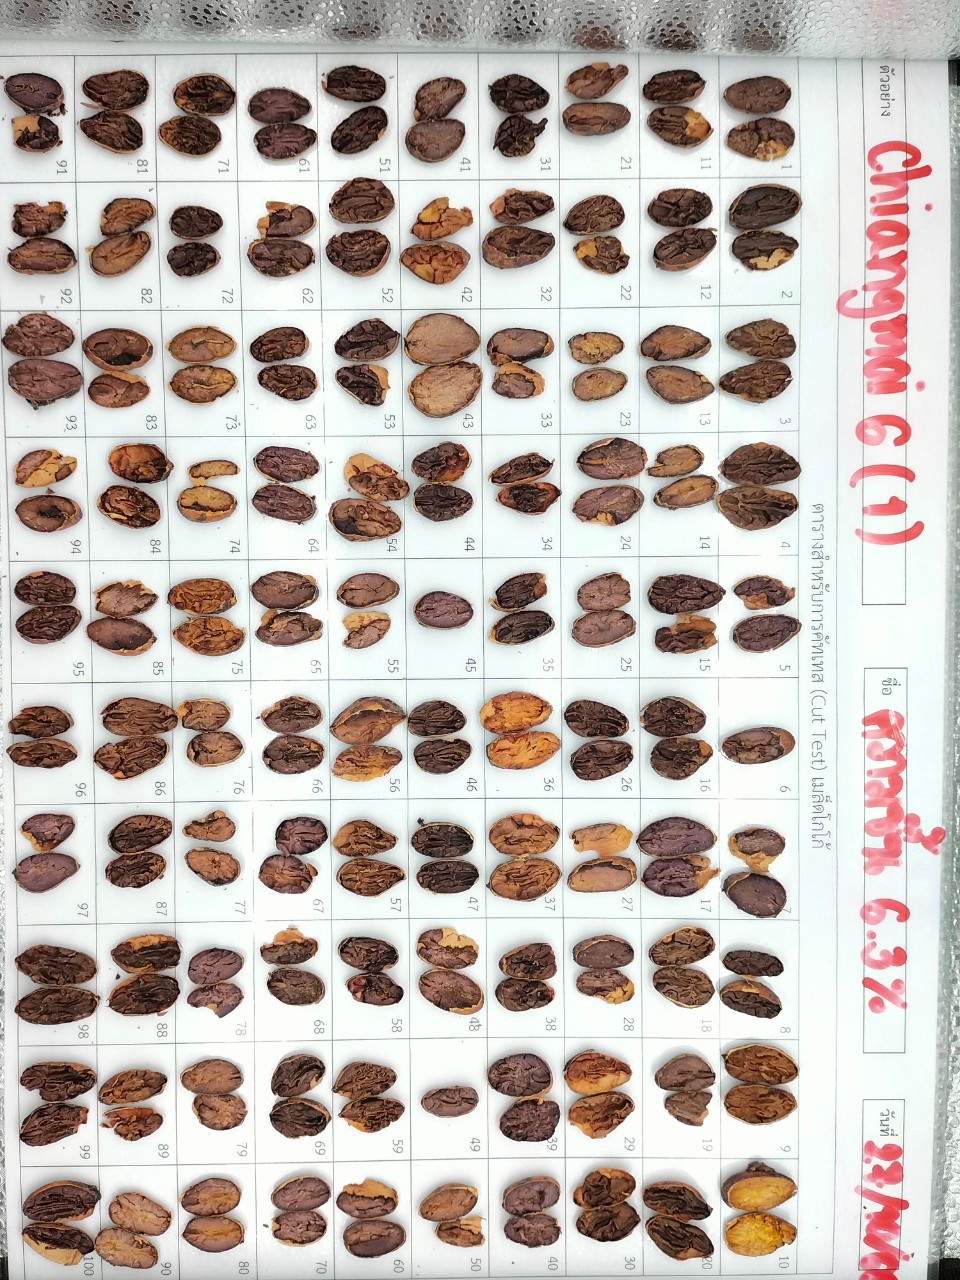 ตัวอย่าง Chiangmai 6 (1) ชื่อ ความชื้น 6.3% วันที่
ตารางสำหรับการคัทเทส (Cut Test) เมล็ดโกโก้
1 2 3 4 5 6 7 8 9 10
11 12 13 14 15 16 17 18 19 20
21 22 23 24 25 26 27 28 29 30
31 32 33 34 35 36 37 38 39 40
41 42 43 44 45 46 47 48 49 50
51 52 53 54 55 56 57 58 59 60
61 62 63 64 65 66 67 68 69 70
71 72 73 74 75 76 77 78 79 80
81 82 83 84 85 86 87 88 89 90
91 92 93 94 95 96 97 98 99 100